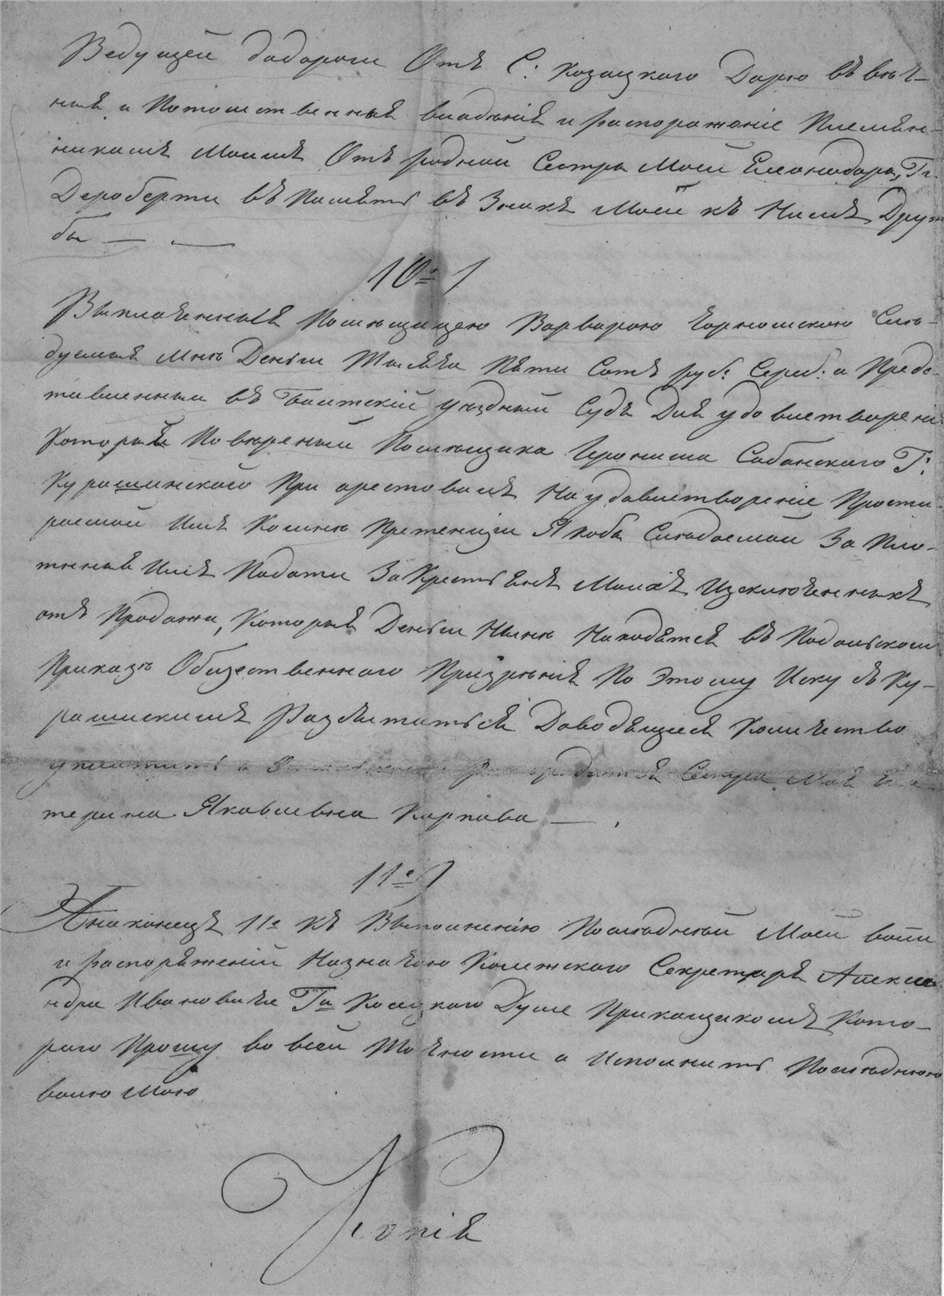 Ведущей додороги Отъ С: Козацкаго Дарю въ вѣч-
ныя и Потомственныя владѣнія и распоряженіе Племян-
никамъ Моимъ Отъ родной Сестры Моей Елеонодоры, Гг.
Дероберти въ Память въ Знакъ Моей къ Нимъ Друж
бы — —
10е)
Выплаченныя Помѣщицею Варварою Чорномскою Слѣ-
дуемыя мнѣ Деньги Тысяча Пять Сотъ руб: Сереб: и Предс-
тавленныя въ Балтскій уѣздный Судъ Для удовлетворенія
Которыя Повѣреный Помѣщика Іеронима Собанскаго Г:
Курашинскаго При арестовалъ На удовлетвореніе Прости-
раемой Имъ Комнѣ Претензіи Якобы Слѣдаемой За Пла-
тныя Имъ Подати За Крестьянъ Моихъ Изключенныхъ
отъ Продажи, Которыя Деньги Нынѣ Находятся въ Подольскомъ
Приказѣ Общественнаго Призрѣнія По Этому Иску съ Ку-
рашискимъ Разсчитаться Доводящіеся Количество
уплатить а Сестра Моя Ека
терина Яковлевна Карпова — .
11е)
Анаконецъ 11е Къ Выполненію Послѣдней Моей воли
и распоряженій Назначаю Колежскаго Секретаря Алекса
ндра Ивановича Гна Косицкаго Душе Прикащикомъ Кото-
раго Прошу во всей Точности а Исполнить Послѣднюю
волю Мою
Копія